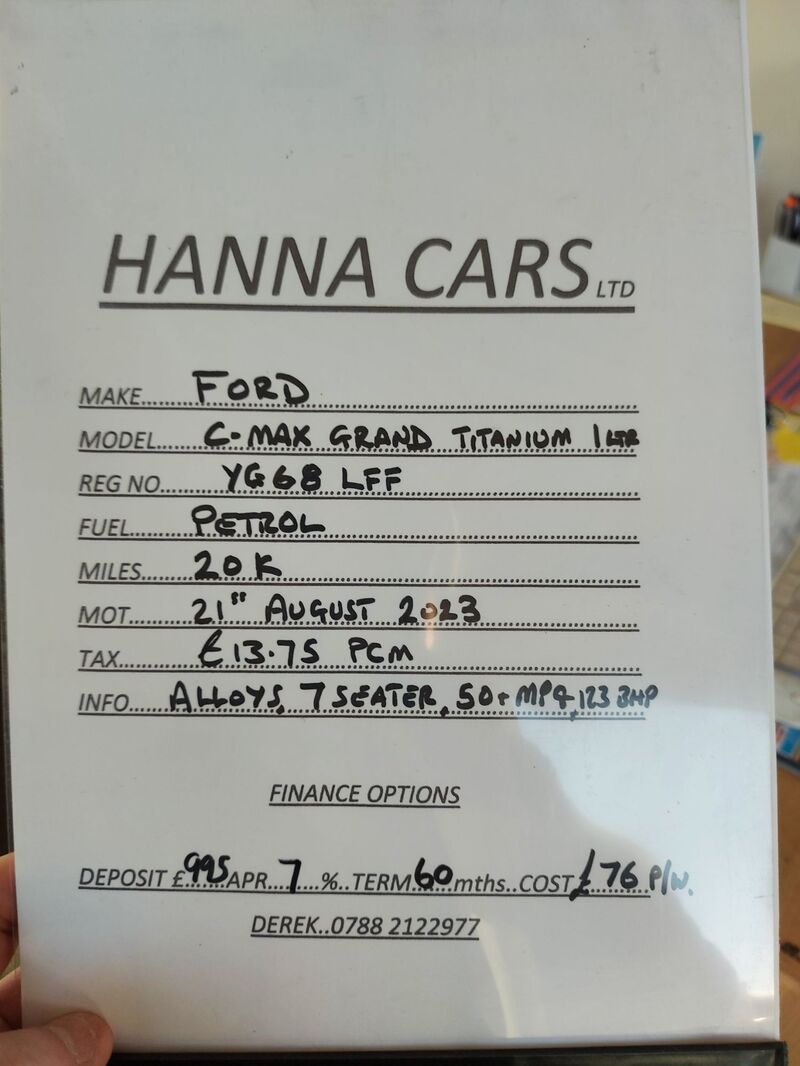 HANNA CARS LTD
MAKE......FORD
MODEL......C-MAX GRAND TITANIUM 1 LTR
REG NO......YG68 LFF
FUEL......PETROL
MILES......20K
MOT......21ST AUGUST 2023
TAX......£13.75 PCM
INFO......ALLOYS, 7 SEATER, 50+ MPG, 123 BHP
FINANCE OPTIONS
DEPOSIT £995 APR 7 %..TERM 60 mths..COST £76 P/W.
DEREK..0788 2122977